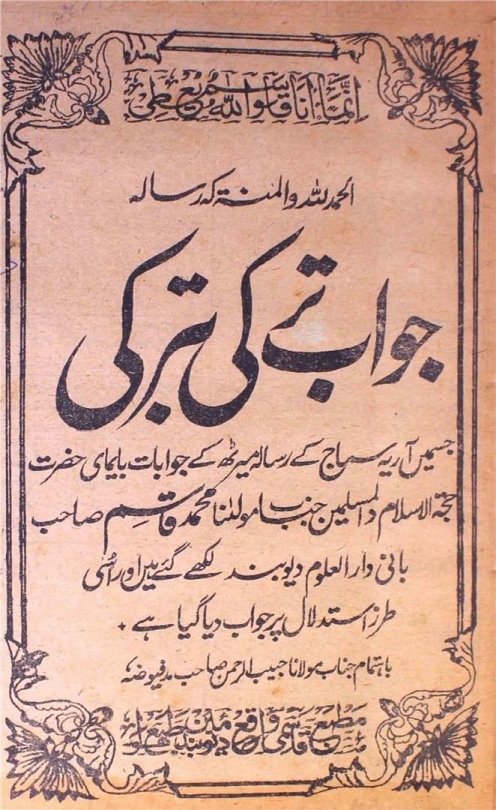 انما انا قاسم واللہ یعطی
الحمد للہ والمنۃ کہ رسالہ
جواب ترکی بترکی
جسمیں آریہ سماج کے رسالہ میرٹھ کے جوابات بایمای حضرت
حجۃ الاسلام والمسلمین جناب مولٰنا محمد قاسم صاحب
بانی دار العلوم دیوبند لکھے گئے ہیں اور اسی
طرز استدلال پر جواب دیا گیا ہے ۔
باہتمام جناب مولانا حبیب الرحمن صاحب مد فیوضہ
مطبع قاسمی واقع دیوبند میں طبع ہوا